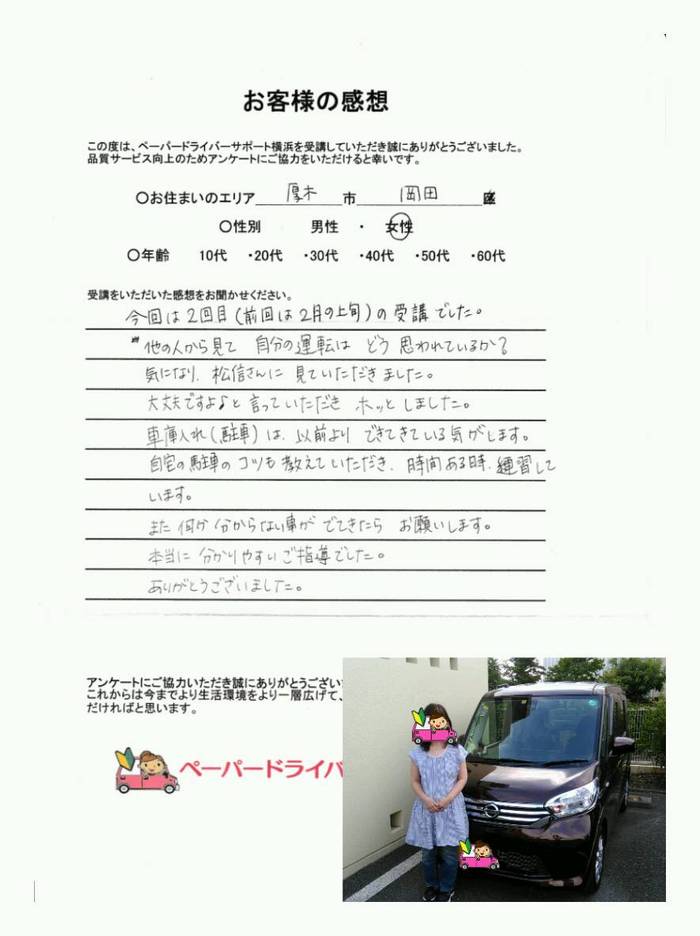 お客様の感想
この度は、ペーパードライバーサポート横浜を受講していただき誠にありがとうございました。
品質サービス向上のためアンケートにご協力をいただけると幸いです。
○お住まいのエリア 厚木 市 岡田
○性別 男性 ・ 女性
○年齢 10代 ・20代 ・30代 ・40代 ・50代 ・60代
受講をいただいた感想をお聞かせください。
今回は2回目(前回は2月の上旬)の受講でした。
他の人から見て 自分の運転は どう 思われているか?
気になり、松信さんに 見ていただきました。
大丈夫ですよ♪と言っていただき ホッと しました。
車庫入れ(駐車)は、以前より できてきている気がします。
自宅の駐車の コツも教えていただき、時間ある時、練習して
います。
また 何か 分からない事が でてきたら お願いします。
本当に 分かりやすい ご指導でした。
ありがとうございました。
アンケートにご協力いただき誠にありがとうござい
これからは今までより生活環境をより一層広げて、
だければと思います。
ペーパードライバ